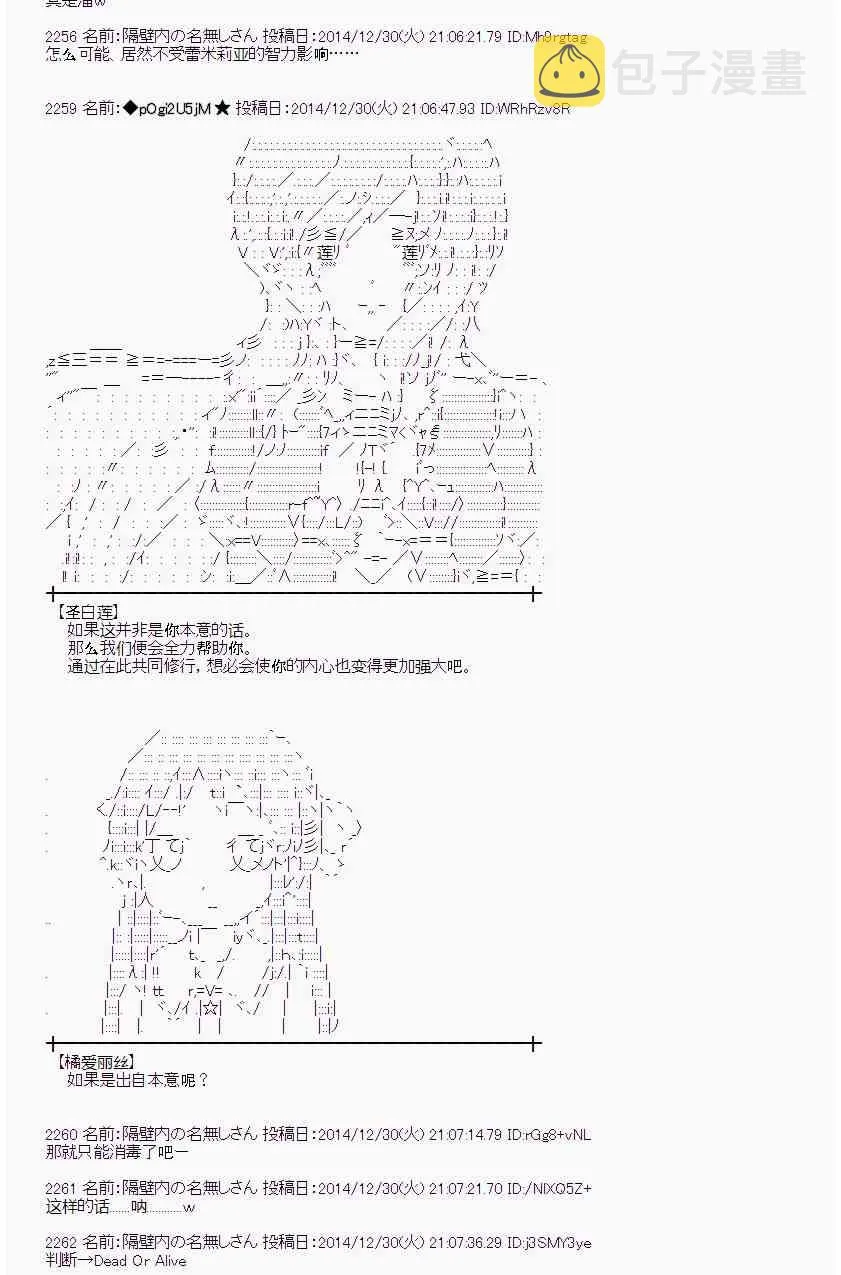 2256 名前：隔壁内の名無しさん 投稿日：2014/12/30(火) 21:06:21.79 ID:Mh9rgtag
怎么可能、居然不受蕾米莉亚的智力影响……
包子漫畫
2259 名前：◆pOgi2U5jM★ 投稿日：2014/12/30(火) 21:06:47.93 ID:WRhRzv8R
【圣白莲】
如果这并非是你本意的话。
那么我们便会全力帮助你。
通过在此共同修行，想必会使你的内心也变得更加强大吧。
【橘爱丽丝】
如果是出自本意呢？
2260 名前：隔壁内の名無しさん 投稿日：2014/12/30(火) 21:07:14.79 ID:rGg8+vNL
那就只能消毒了吧ー
2261 名前：隔壁内の名無しさん 投稿日：2014/12/30(火) 21:07:21.70 ID:/NlXQ5Z+
这样的话.......呐...........w
2262 名前：隔壁内の名無しさん 投稿日：2014/12/30(火) 21:07:36.29 ID:j3SMY3ye
判断→Dead Or Alive